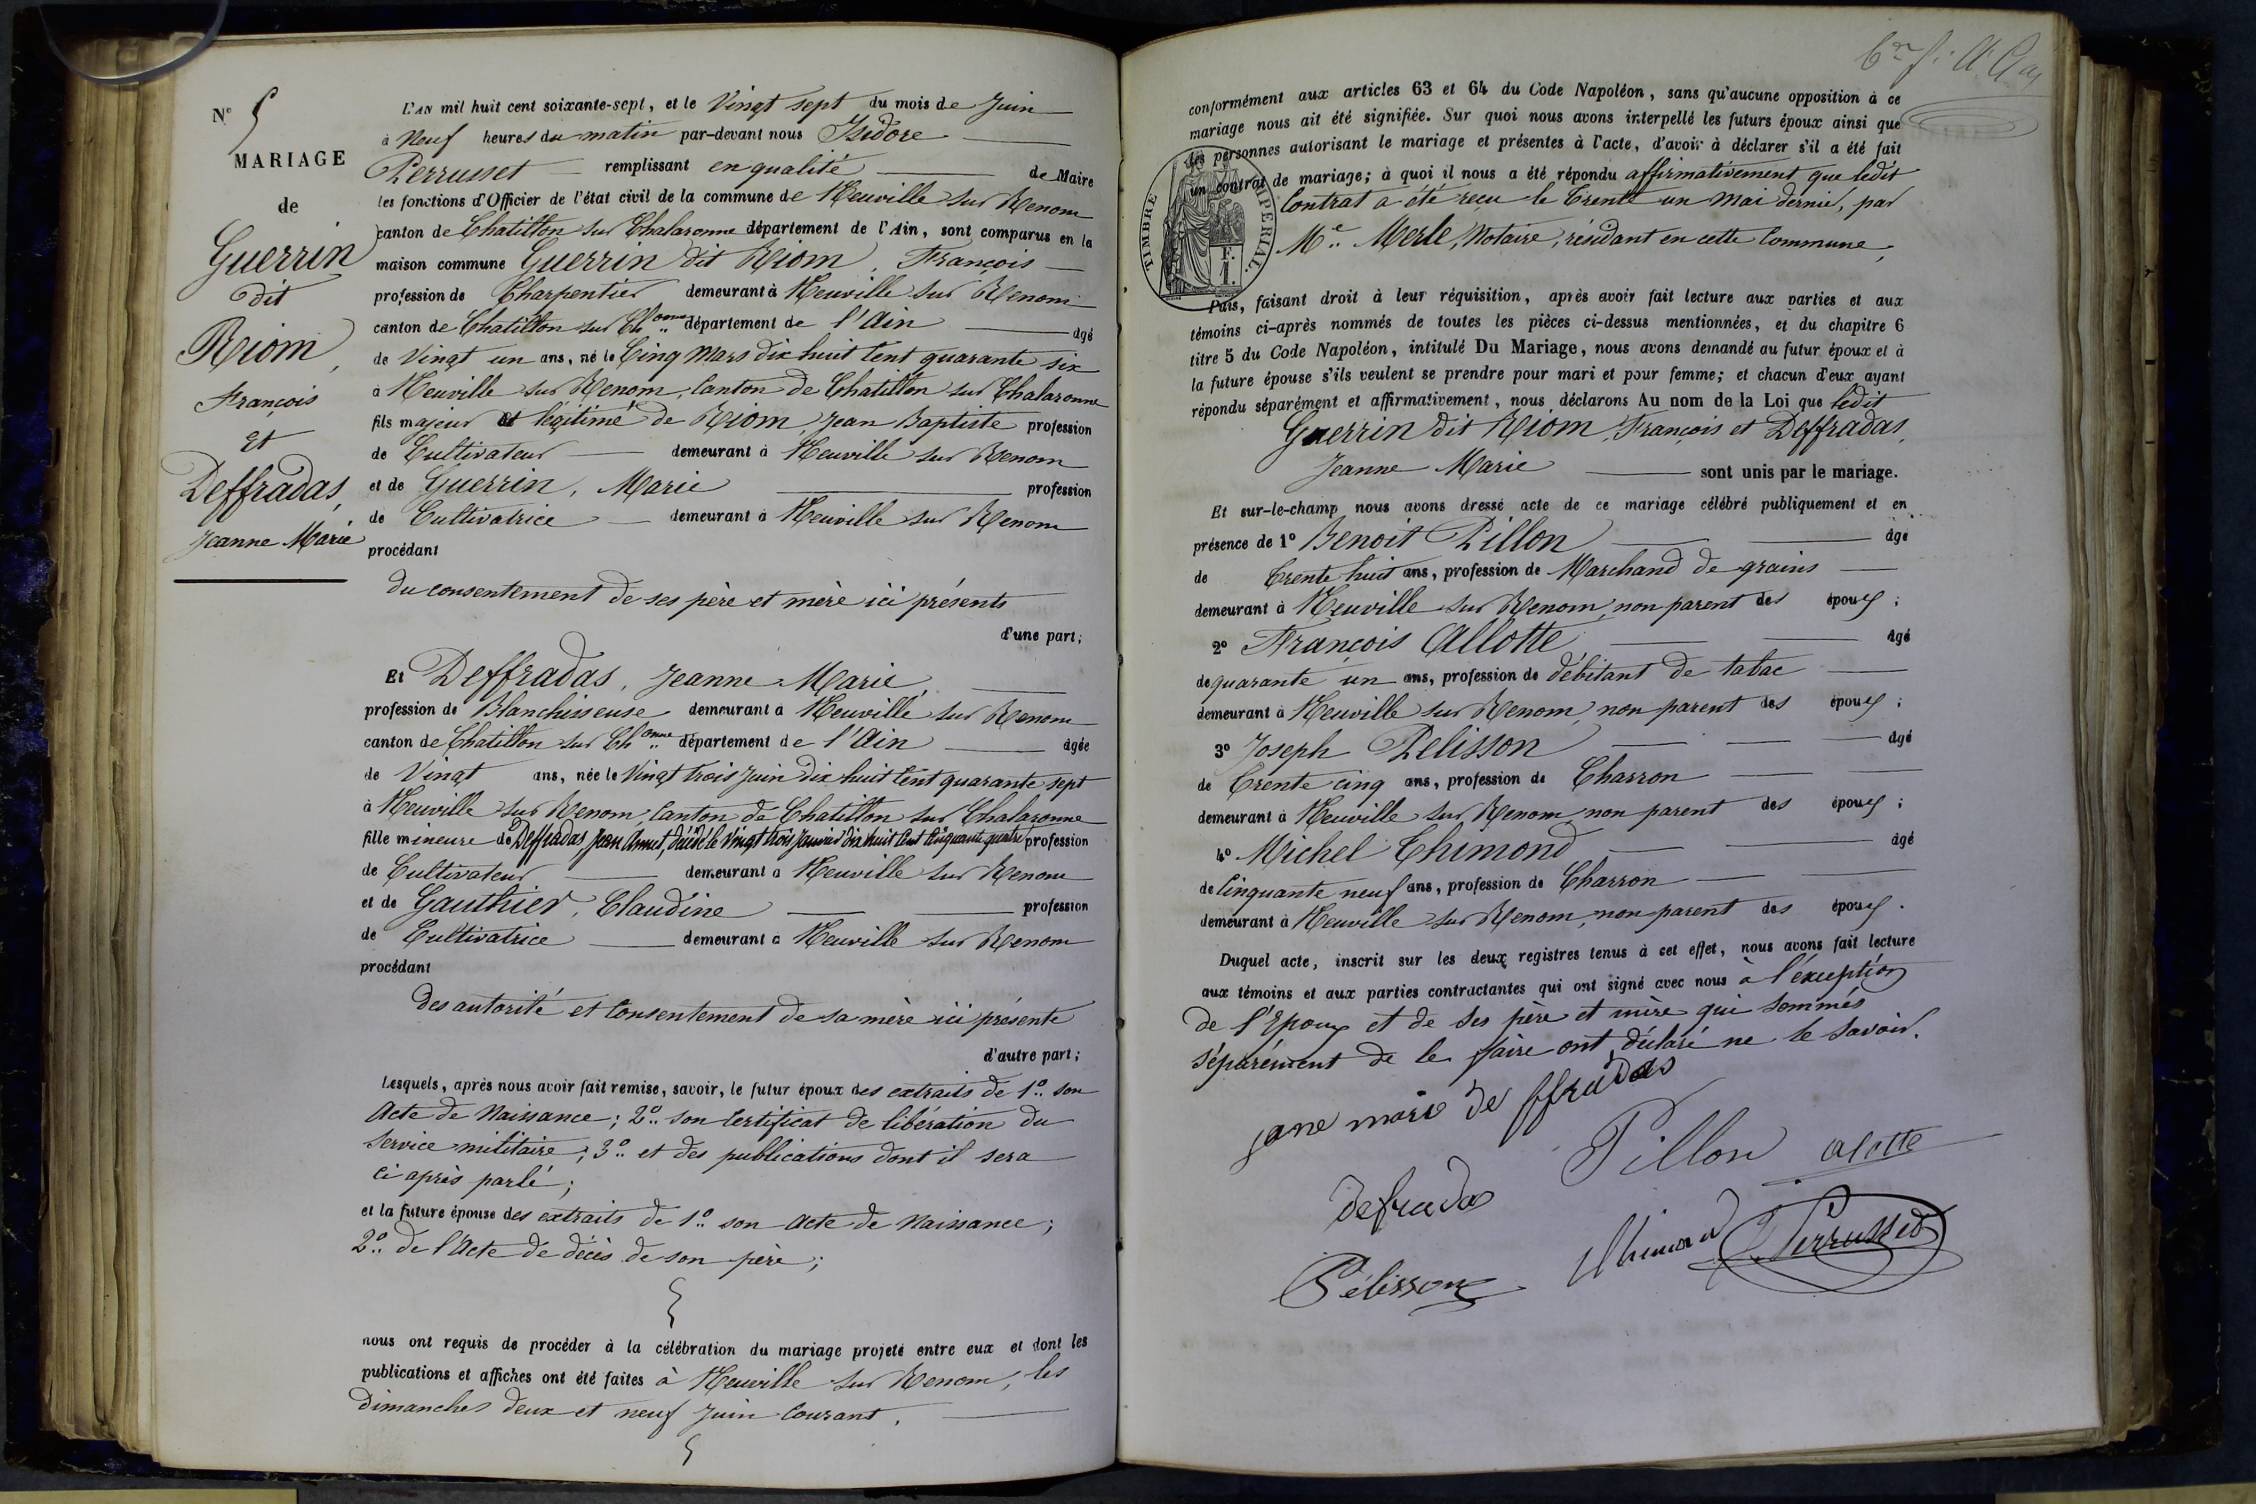 N° 5
MARIAGE
de
Guerrin
dit
Riom,
François
Et
Deffradas,
Jeanne Marie
L'AN mil huit cent soixante-sept, et le Vingt sept du mois de Juin
à Neuf heures du matin par-devant nous Isidore
Perrusset remplissant en qualité de Maire
les fonctions d'Officier de l'état civil de la commune de Neuville sur Renom
canton de Chatillon sur Chalaronne département de l'Ain, sont comparus en la
maison commune Guerrin dit Riom, François
profession de Charpentier demeurant à Neuville sur Renom
canton de Chatillon sur Chonne département de l'Ain âgé
de Vingt un ans, né le Cinq Mars dix huit cent quarante six
à Neuville sur Renom, Canton de Chatillon sur Chalaronne
fils majeur et légitimé de Riom, Jean Baptiste profession
de Cultivateur demeurant à Neuville sur Renom
et de Guerrin, Marie profession
de Cultivatrice demeurant à Neuville sur Renom
procédant
du consentement de ses père et mère ici présents
d'une part;
Et Deffradas, Jeanne Marie,
profession de Blanchisseuse demeurant à Neuville sur Renom
canton de Chatillon sur Chonne département de l'Ain âgée
de Vingt ans, née le Vingt trois Juin dix huit cent quarante sept
à Neuville sur Renom, Canton de Chatillon sur Chalaronne
fille mineure de Deffradas Jean Annet, décédé le vingt trois Janvier dix huit cent cinquante quatre profession
de Cultivateur demeurant à Neuville sur Renom
et de Gauthier, Claudine profession
de Cultivatrice demeurant à Neuville sur Renom
procédant
des autorité et consentement de sa mère ici présente
d'autre part;
Lesquels, après nous avoir fait remise, savoir, le futur époux des extraits de 1°.. son
Acte de Naissance; 2°.. son Certificat de libération du
service militaire; 3°.. et des publications dont il sera
ci après parlé;
et la future épouse des extraits de 1°.. son Acte de Naissance;
2°.. de l'Acte de décès de son père;
nous ont requis de procéder à la célébration du mariage projeté entre eux et dont les
publications et affiches ont été faites à Neuville sur Renom, les
dimanches deux et neuf Juin Courant,
conformément aux articles 63 et 64 du Code Napoléon, sans qu'aucune opposition à ce
mariage nous ait été signifiée. Sur quoi nous avons interpellé les futurs époux ainsi que
les personnes autorisant le mariage et présentes à l'acte, d'avoir à déclarer s'il a été fait
un contrat de mariage; à quoi il nous a été répondu affirmativement que ledit
Contrat a été reçu le trente un Mai dernier, par
Me.. Merle, Notaire, résidant en cette Commune,
TIMBRE IMPERIAL.
F.
1.
Puis, faisant droit à leur réquisition, après avoir fait lecture aux parties et aux
témoins ci-après nommés de toutes les pièces ci-dessus mentionnées, et du chapitre 6
titre 5 du Code Napoléon, intitulé Du Mariage, nous avons demandé au futur époux et à
la future épouse s'ils veulent se prendre pour mari et pour femme; et chacun d'eux ayant
répondu séparément et affirmativement, nous déclarons Au nom de la Loi que ledit
Guerrin dit Riom, François et Deffradas,
Jeanne Marie sont unis par le mariage.
Et sur-le-champ nous avons dressé acte de ce mariage célébré publiquement et en
présence de 1° Benoit Pillon âgé
de Trente huit ans, profession de Marchand de grains
demeurant à Neuville sur Renom, non parent des époux;
2° François Allotte âgé
de quarante un ans, profession de débitant de tabac
demeurant à Neuville sur Renom, non parent des époux;
3° Joseph Pelisson âgé
de Trente cinq ans, profession de Charron
demeurant à Neuville sur Renom, non parent des époux;
4° Michel Thimond âgé
de Cinquante neuf ans, profession de Charron
demeurant à Neuville sur Renom, non parent des époux.
Duquel acte, inscrit sur les deux registres tenus à cet effet, nous avons fait lecture
aux témoins et aux parties contractantes qui ont signé avec nous à l'exception
de l'Epoux et de ses père et mère qui sommés
séparément de le faire ont déclaré ne le savoir.
jane marie deffradas
Pillon alotte
defradas
Thimond Perrusset
Pélisson